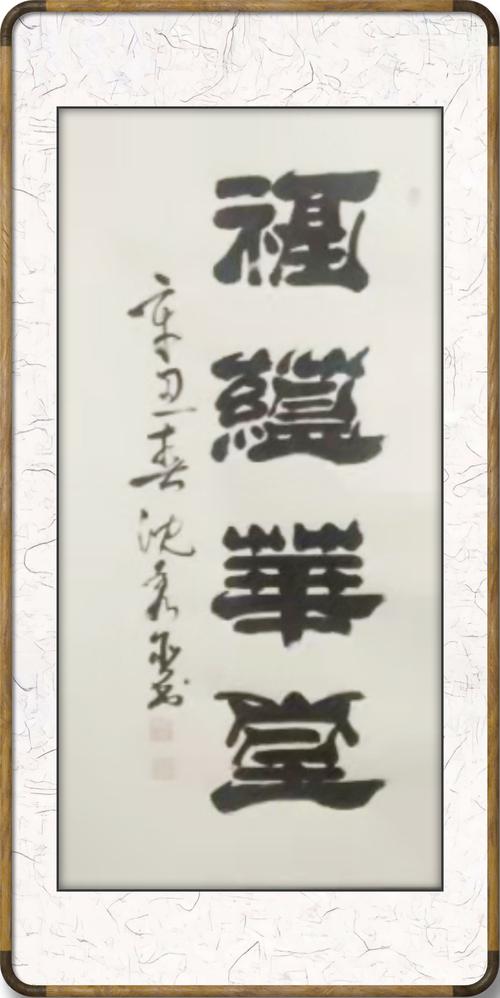 福蘊華堂
辛丑春沈